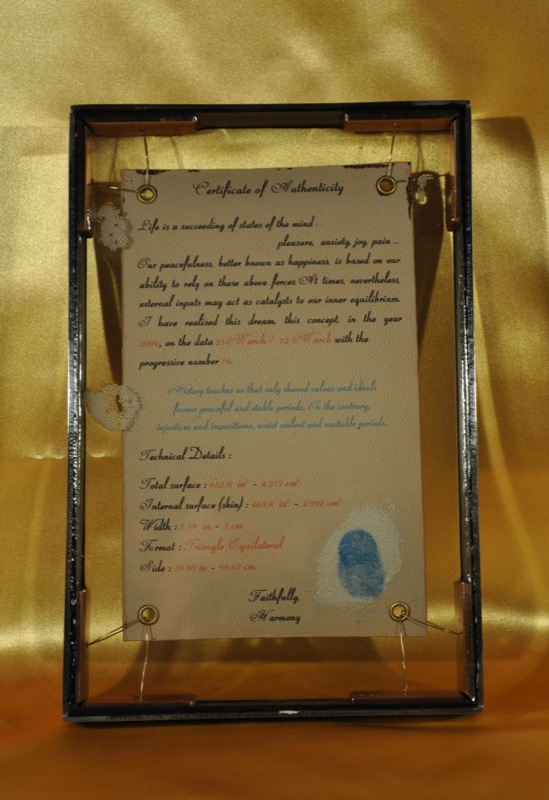 Certificate of Authenticity
Life is a succeeding of states of the mind :
pleasure, anxiety, joy, pain ...
Our peacefulness, better known as happiness, is based on our
ability to rely on these above forces. At times, nevertheless,
external inputs may act as catalysts to our inner equilibrium.
I have realised this dream, this concept, in the year
2009, on the data March / 12 March with the
progressive number
History teaches us that only shared values and ideals
favour peaceful and stable periods. On the contrary,
injustices and impositions, assist violent and unstable periods.
Technical Details :
Total surface : 652.8 in² - 4.212 cm²
Internal surface (skin) : in² - 2.992 cm²
Width : in - 3 cm
Format : Triangle Equilateral
Side : in - cm
Faithfully,
Harmony